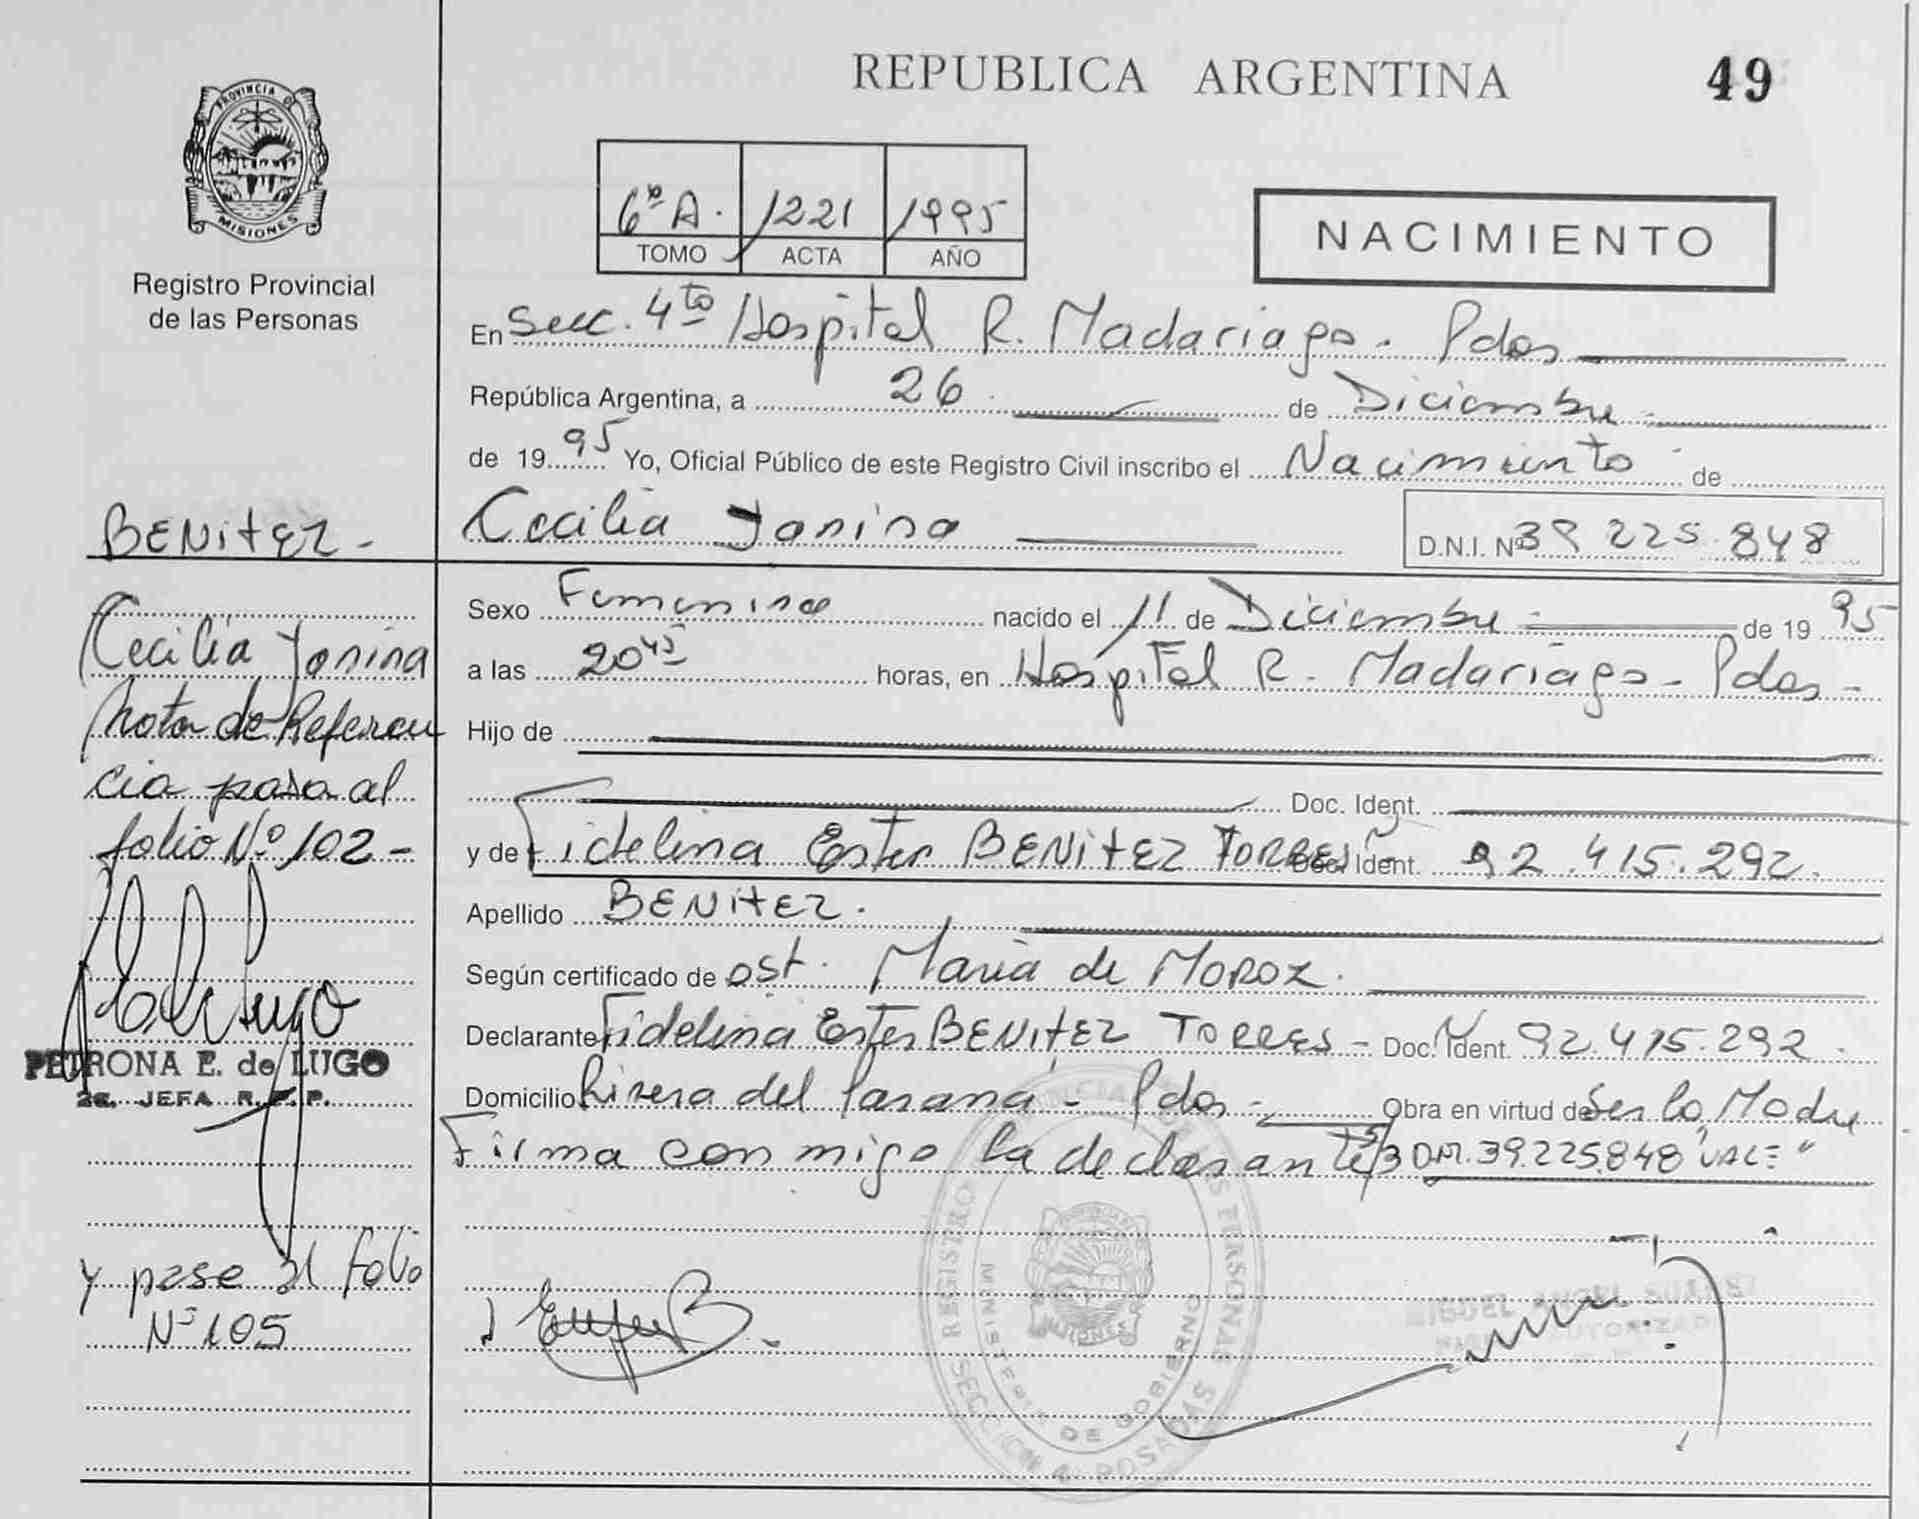 REPUBLICA ARGENTINA
49
PROVINCIA DE
MISIONES
Registro Provincial
de las Personas
6º A. 1221 1995
TOMO ACTA AÑO
NACIMIENTO
En Secc. 4to Hospital R. Madariaga - Pdas
República Argentina, a 26 de Diciembre
de 1995 Yo, Oficial Público de este Registro Civil inscribo el Nacimiento de
BENITEZ -
Cecilia Yanina
D.N.I. Nº 39 225.848
Sexo Femenino nacido el 11 de Diciembre de 1995
a las 20 45 horas, en Hospital R. Madariaga - Pdas -
Hijo de
Doc. Ident.
y de Fidelina Ester BENITEZ TORRES Doc. Ident. 92.415.292.
Apellido BENITEZ.
Según certificado de Ost. Maria de MOROZ.
Declarante Fidelina Ester BENITEZ TORRES - Doc. Ident. 92.415.292.
Domicilio Rivera del Paraná - Pdas - Obra en virtud de Ser la Madre
Firma con migo la declarante 39.225.848 "VALE"
Cecilia Yanina
Nota de Referen
cia pasa al
folio Nº 102 -
PETRONA E. de LUGO
2a. JEFA R. P. P.
y pase al folio
Nº 105
REGISTRO PROVINCIAL DE LAS PERSONAS
MINISTERIO DE GOBIERNO
SECCION 4a POSADAS
MIGUEL ANGEL SUAREZ
AUTORIZADO